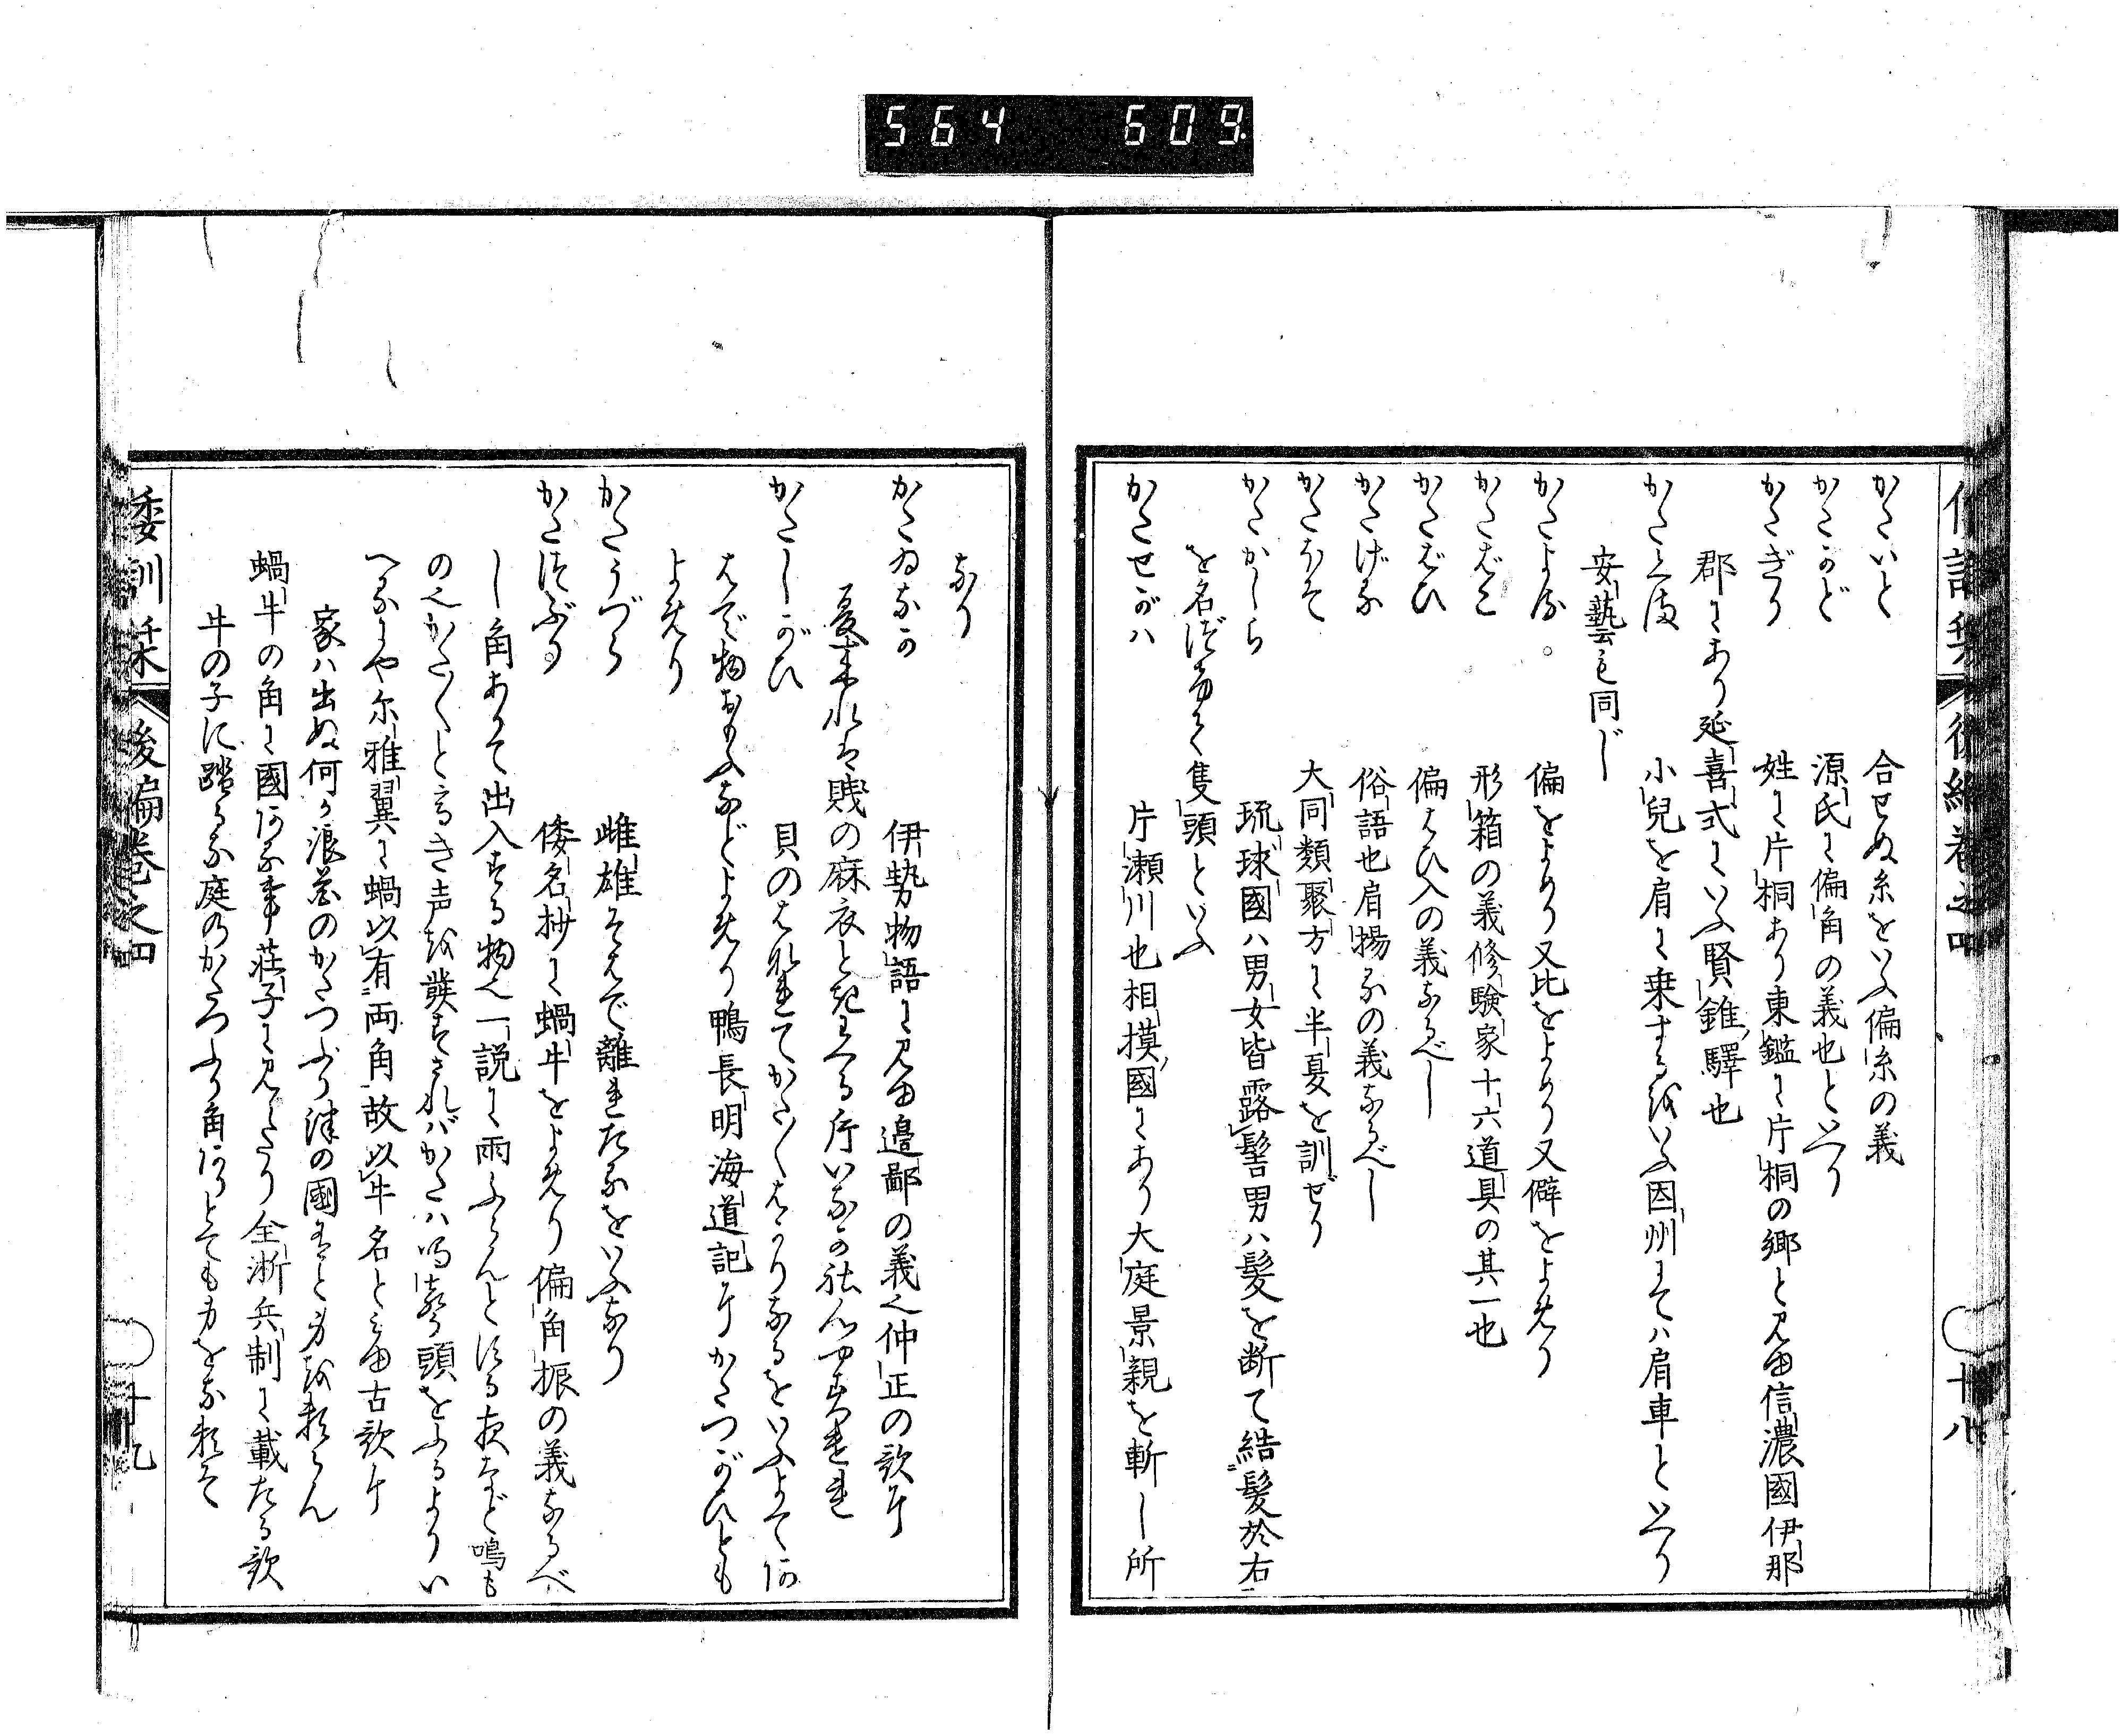 564 609
かたいと 合せぬ糸をいふ偏糸の義
かたかど 源氏に偏角の義也といへり
かたぎり 姓に片桐あり東鑑に片桐の郷と見ゆ信濃國伊那
郡にあり延喜式にいふ賢錐驛也
かたくま 小兒を肩に乗するをいふ因州にては肩車といへり
安藝も同じ
かたよる 偏をよめり又比をよめり又僻をよめり
かたばこ 形箱の義修験家十六道具の其一也
かたばひ 偏はひ入の義なるべし
かたげる 俗語也肩揚るの義なるべし
かたほそ 大同類聚方に半夏を訓ぜり
かたかしら 琉球國ハ男女皆露髻男ハ髪を断て結髪於右
を名づけて隻頭といふ
かたせがハ 片瀬川也相摸國にあり大庭景親を斬し所
なり
かたゐなか 伊勢物語に見ゆ邉鄙の義也仲正の歌に
夏来れは賎の麻衣ときかへる片いなかこそ心やすけれ
かたしがひ 貝のはなれてかた〳〵はかりなるをいふよてあ
はで物おもふなどよめり鴨長明海道記にかたつがひとも
よめり
かたうづら 雌雄そはで離れたるをいふなり
かたつぶり 倭名抄に蝸牛をよめり偏角振の義なるべ
し角ありて出入する物也一説に雨ふらんとする夜など鳴も
の也かた〳〵と高き声を發すされバかたハ鳴声頭をふるよりい
へるにや尓雅翼に蝸以有両角故以牛名と見ゆ古歌に
家ハ出ぬ何か浪花のかたつぶり津の國とても身を頼らん
蝸牛の角に國ある事荘子に見えたり全浙兵制に載たる歌
牛の子に踏るな庭のかたつぶり角ありとても身をな頼そ
倭訓栞 後編巻之四 十八
倭訓栞 後編巻之四 十九